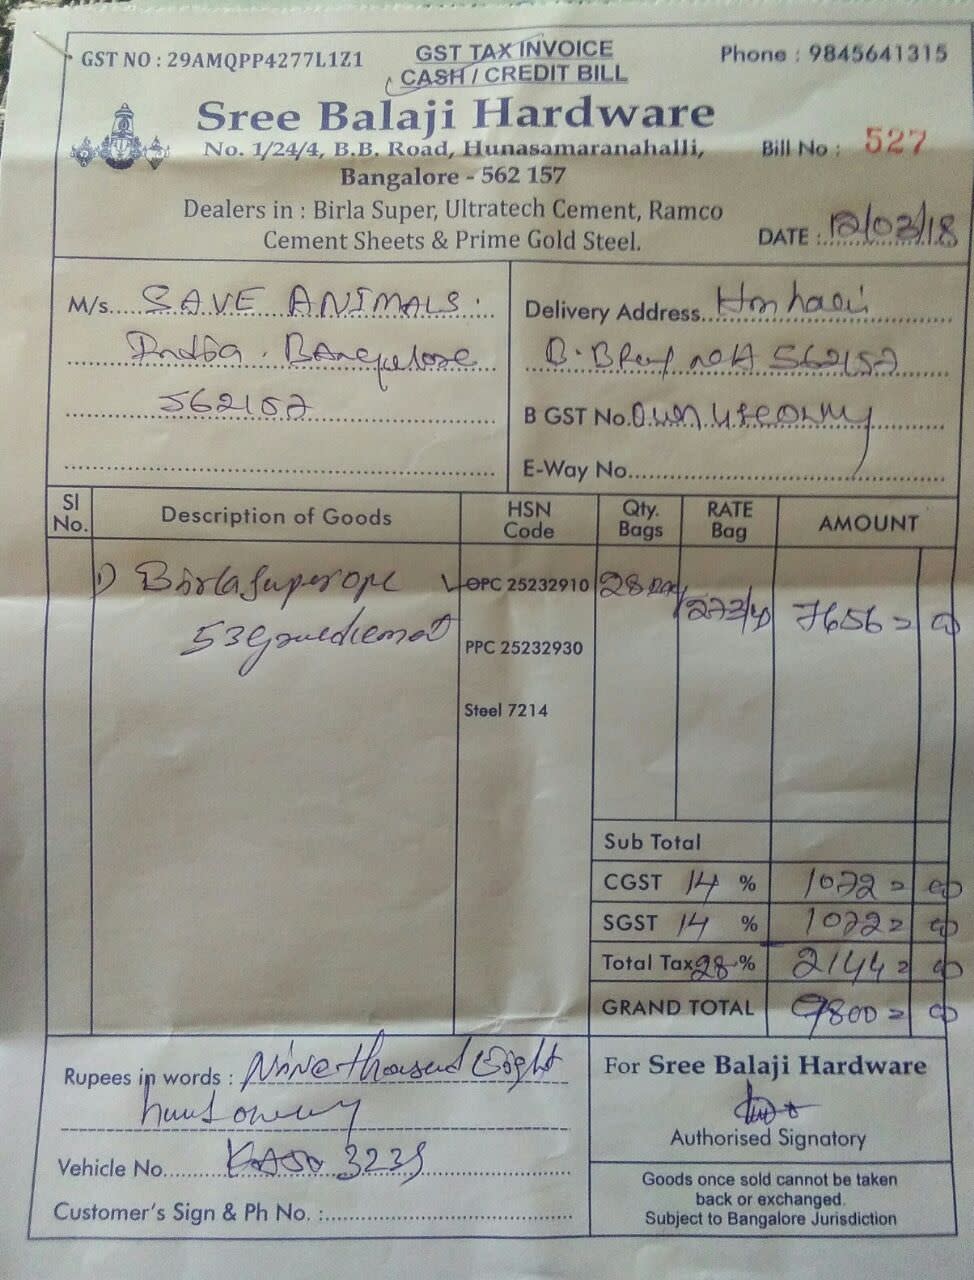 GST NO : 29AMQPP4277L1Z1
GST TAX INVOICE
CASH / CREDIT BILL
Phone : 9845641315
Sree Balaji Hardware
No. 1/24/4, B.B. Road, Hunasamaranahalli,
Bangalore - 562 157
Bill No : 527
Dealers in : Birla Super, Ultratech Cement, Ramco
Cement Sheets & Prime Gold Steel.
DATE : 12/03/18
M/s. SAVE ANIMALS
India. Bangalore
562157
Delivery Address
562157
B GST No. Own use only
E-Way No.
Sl No. Description of Goods HSN Code Qty. Bags RATE Bag AMOUNT
1) Birla super opc OPC 25232910 28 7656=00
53 PPC 25232930
Steel 7214
Sub Total
CGST 14 % 1072=00
SGST 14 % 1072=00
Total Tax 28 % 2144=00
GRAND TOTAL 9800=00
Rupees in words : Nine thousand Eight
For Sree Balaji Hardware
Authorised Signatory
Vehicle No.
Customer's Sign & Ph No. :
Goods once sold cannot be taken
back or exchanged.
Subject to Bangalore Jurisdiction